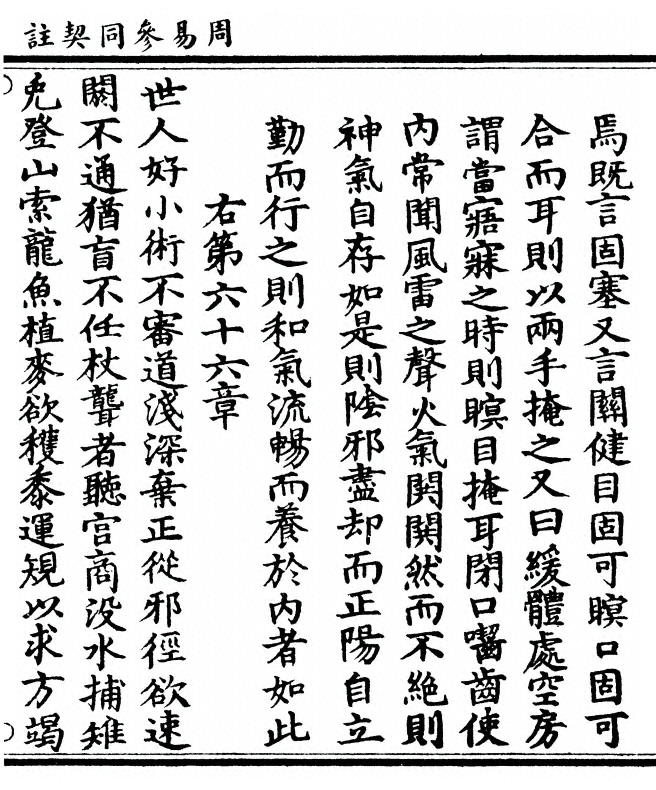 周易參同契註
焉既言固塞又言關健目固可瞑口固可
合而耳則以兩手掩之又曰緩體處空房
謂當寤寐之時則瞑目掩耳閉口嚙齒使
內常聞風雷之聲火氣関関然而不絕則
神氣自存如是則陰邪盡却而正陽自立
勤而行之則和氣流暢而養於內者如此
右第六十六章
世人好小術不審道淺深棄正從邪徑欲速
閼不通猶盲不任杖聾者聽宫商没水捕雉
兎登山索龍魚植麥欲穫黍運規以求方竭